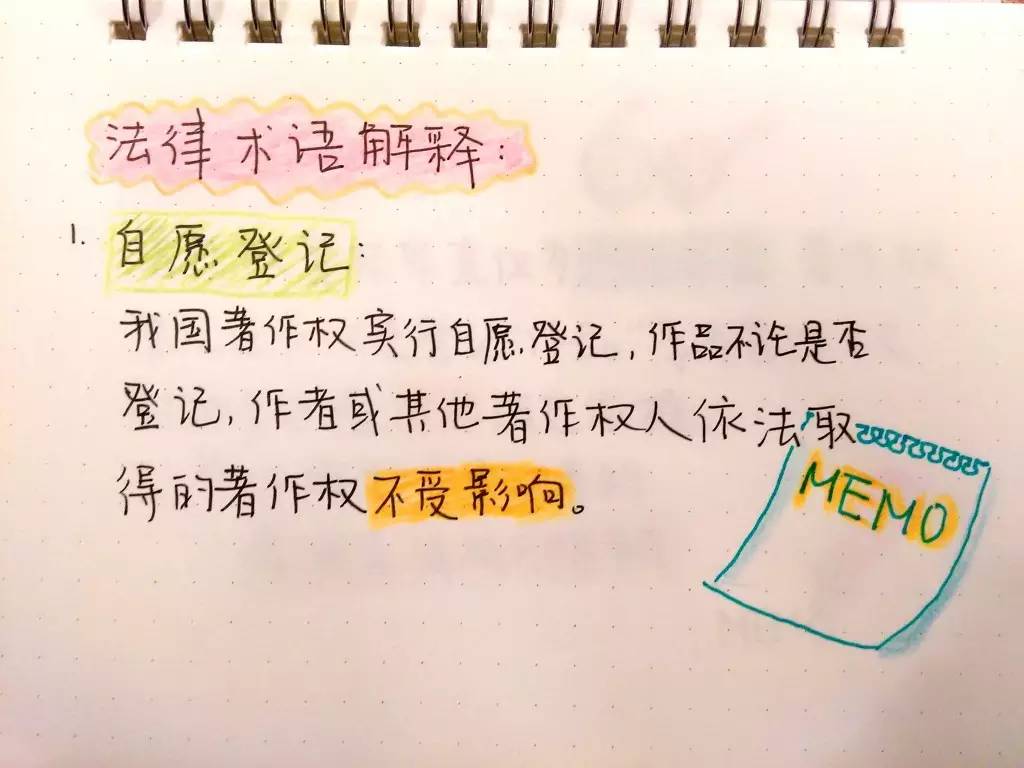 法律术语解释:
1. 自愿登记:
我国著作权实行自愿登记,作品不论是否
登记,作者或其他著作权人依法取
得的著作权不受影响。
MEMO